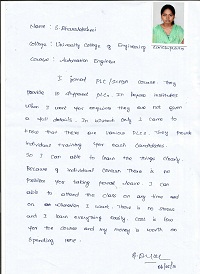 Name : S. Dhanalakshmi
College : University College of Engineering Kancheepuram
Course : Automation Engineer
I joined PLC/SCADA course. They
provide 10 different PLCs. In before institutes
when I went for enquiry they are not given
a full details. In only I came to
know that there are various PLCs. They provide
individual training for each candidates.
So I can able to learn the things clearly.
Because of individual center there is no
problem for taking period leave. I can
able to attend the class on any time and
on whenever I want. There is no stress
and I learn everything easily. Cost is low
for the course and my money is worth on
spending here.